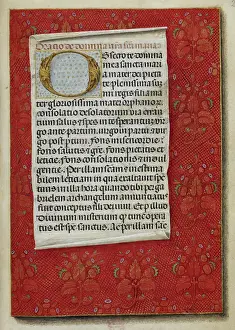 Oracio de domina nostra sancta maria
Obsecro te domina
mea sancta maria
mater dei pieta
te plenissima sum
mi regis filia ma
ter gloriosissima mater orphanorum
consolatio desolatorum via erran
tium salus et spes in te sperantium virgo
ante partum, virgo in partu virgo
post partum, fons misericordie
fons salutis et gratie, fons pietatis et
letitie, fons consolationis et indul
gentie. Per illam sanctam inestima
bilem letitiam qua exultavit spiritus
tuus in illa hora quando tibi per ga
brielem archangelum annunciatus
fuit filius dei conceptus. Et per illud
divinum misterium quod tunc operatus
est spiritus sanctus. Et per illam sac